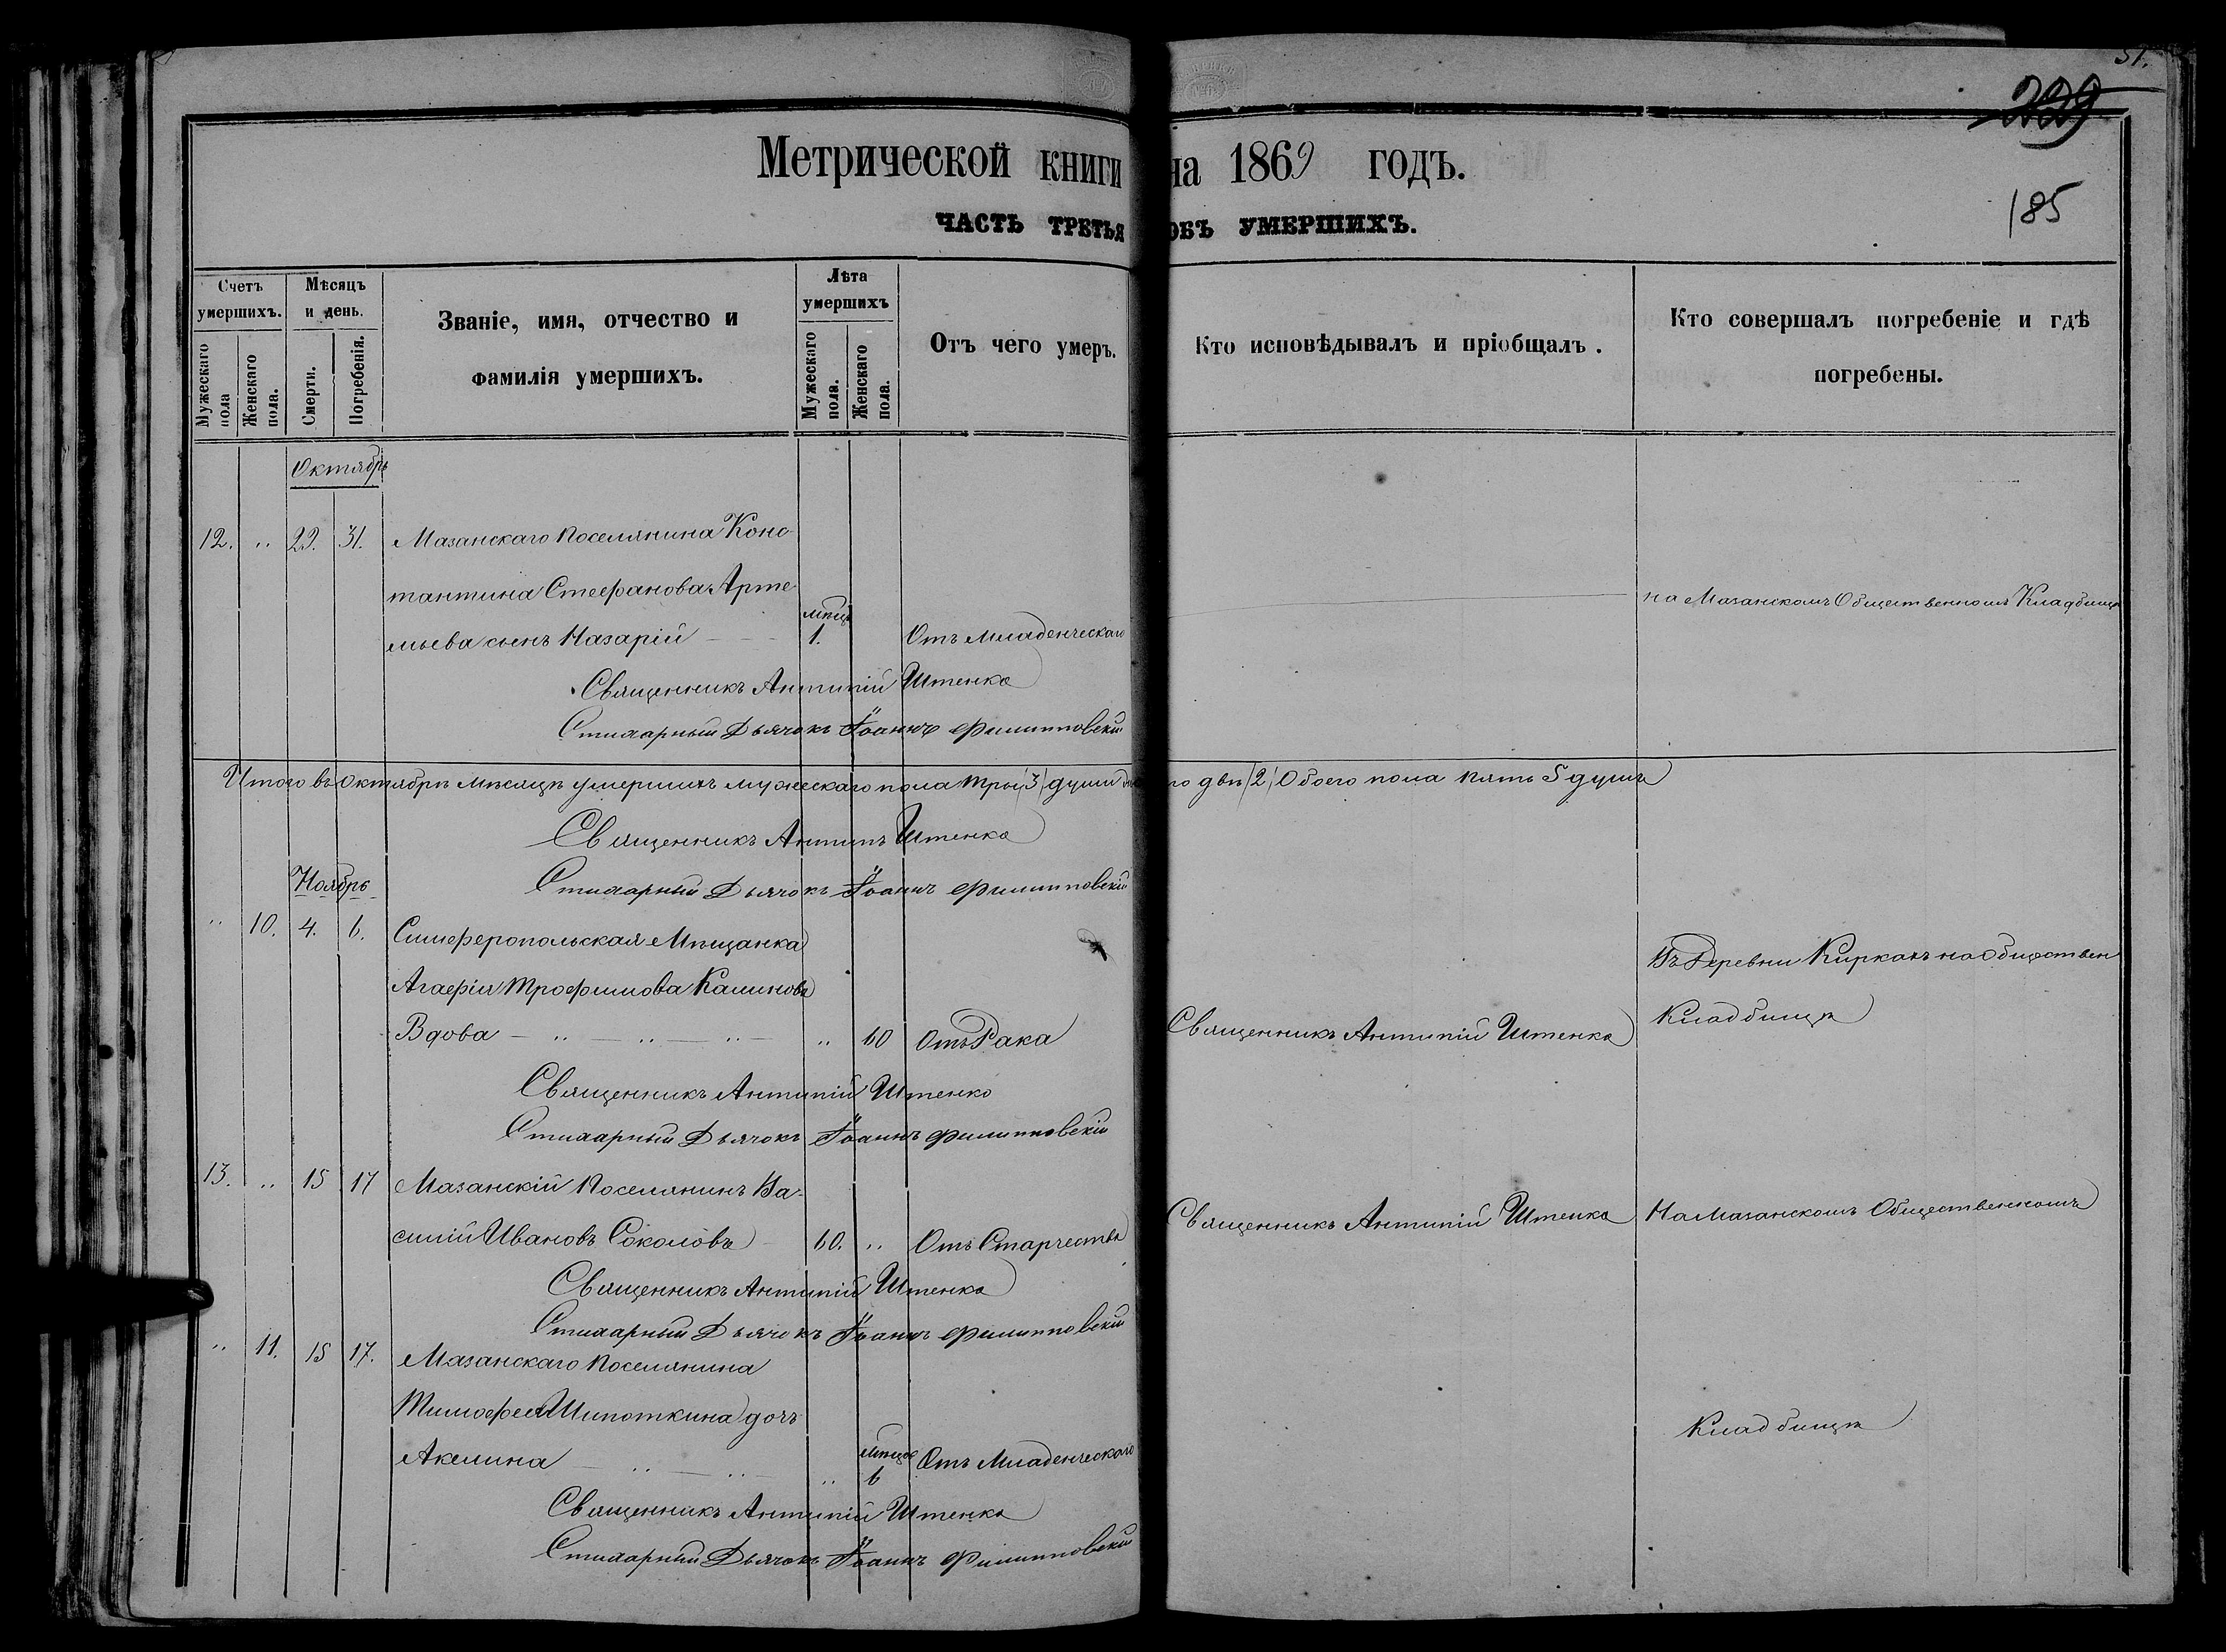 51.
229
185
Метрической книги на 1869 годъ.
ЧАСТЬ ТРЕТЬЯ ОБЪ УМЕРШИХЪ.
Счетъ умершихъ.
Мужескаго пола
Женскаго пола.
Мѣсяцъ и день.
Смерти.
Погребенія.
Званіе, имя, отчество и
фамилія умершихъ.
Лѣта умершихъ
Мужескаго пола.
Женскаго пола.
Отъ чего умеръ.
Кто исповѣдывалъ и пріобщалъ.
Кто совершалъ погребеніе и гдѣ
погребены.
Октябрь
12. " 29. 31. Мазанскаго Поселянина Конс-
тантина Стефанова Арте-
мьева сынъ Назарій мѣсяц 1. Отъ младенческаго
на Мазанскомъ Общественномъ Кладбищѣ
Священникъ Антипій Штенко
Стихарный Дьячокъ Іоаннъ Филипповскій
Итого въ октябрѣ мѣсяцѣ умершихъ мужескаго пола три /3/ души го двѣ /2/ Обоего пола пять 5 душъ
Священникъ Антипъ Штенко
Стихарный Дьячокъ Іоаннъ Филипповскій
Ноябрь
" 10. 4. 6. Симферопольская Мѣщанка
Агафія Трофимова Калинова
Вдова " 60 Отъ Рака
Священникъ Антипій Штенко
Въ Деревни Киркахъ на Обществен
Кладбищѣ
Священникъ Антипій Штенко
Стихарный Дьячокъ Іоаннъ Филипповскій
13. " 15 17 Мазанскій Поселянинъ Ва-
силій Ивановъ Соколовъ 60. " Отъ Старчества
Священникъ Антипій Штенко
На Мазанскомъ Общественномъ
Священникъ Антипій Штенко
Стихарный Дьячокъ Іоаннъ Филипповскій
" 11. 15 17. Мазанскаго Поселянина
Тимофея Шипоткина дочь
Акелина " мѣсцов 6 Отъ Младенческаго
Кладбищѣ
Священникъ Антипій Штенко
Стихарный Дьячокъ Іоаннъ Филипповскій